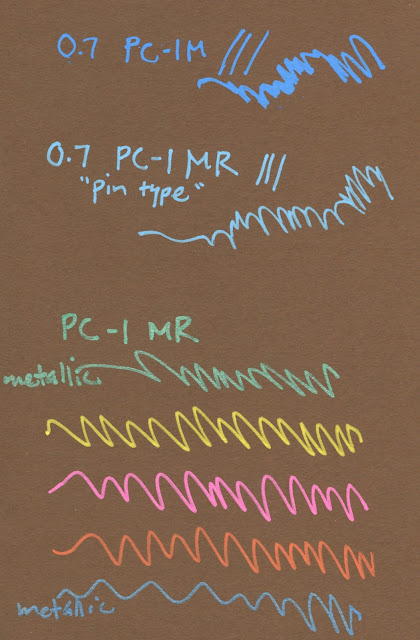 0.7 PC-1M
0.7 PC-1 MR
"pin type"
PC-1 MR
metallic
metallic